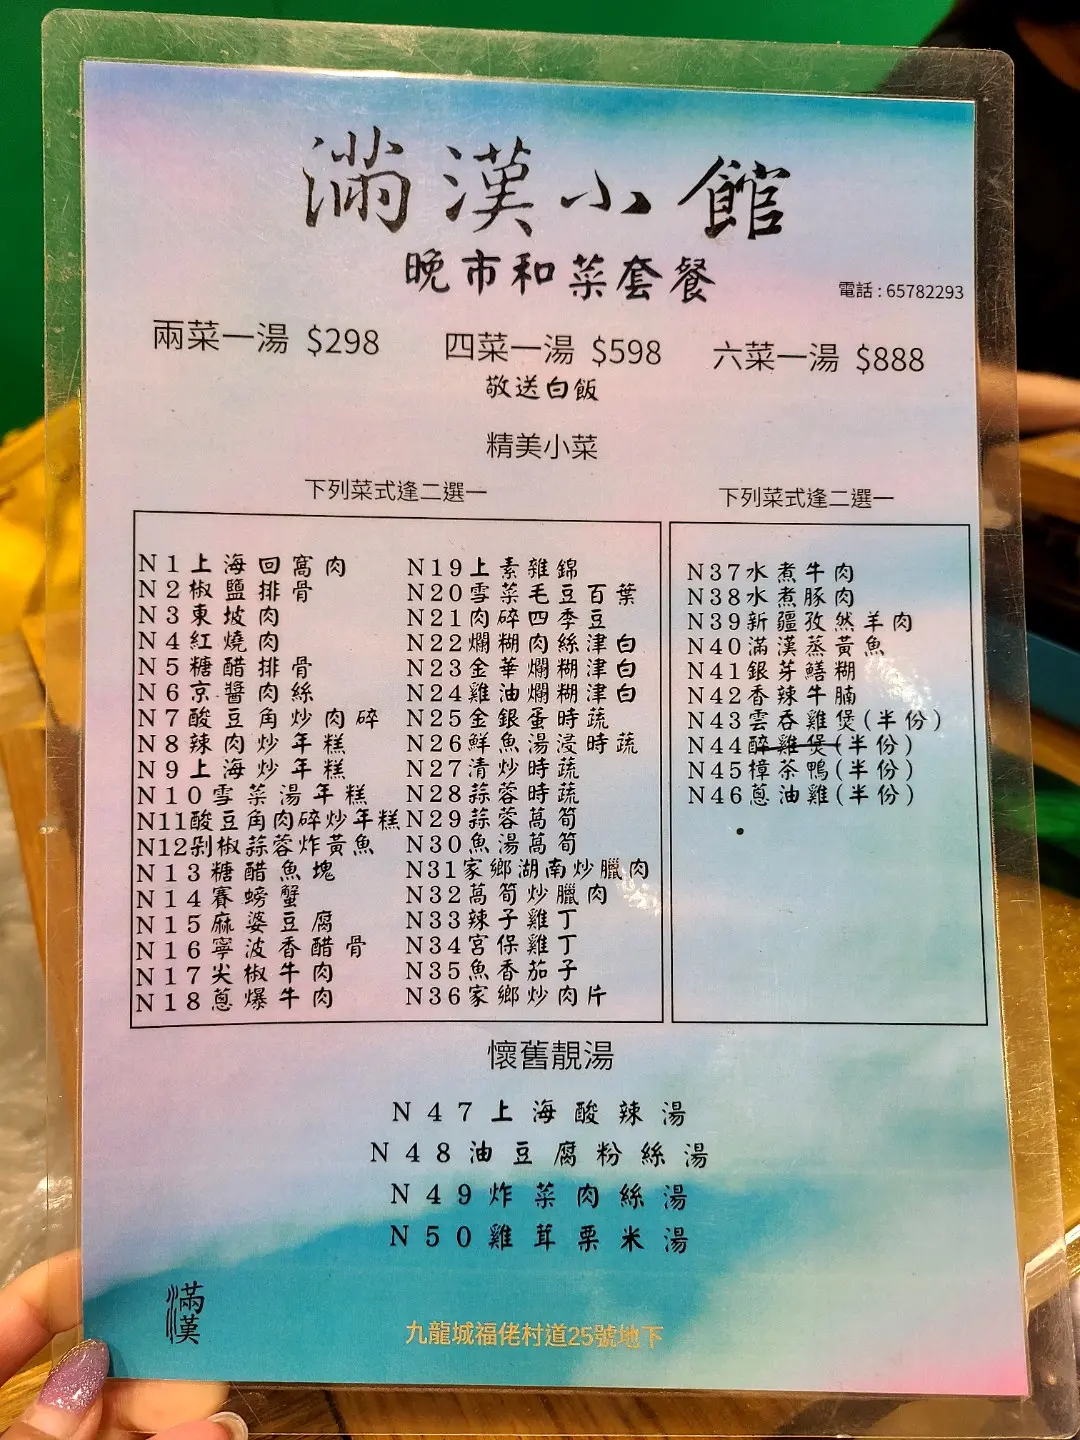 滿漢小館
晚市和菜套餐
電話 : 65782293
兩菜一湯 $298
四菜一湯 $598
六菜一湯 $888
敬送白飯
精美小菜
下列菜式逢二選一
N1上海回窩肉
N2椒鹽排骨
N3東坡肉
N4紅燒肉
N5糖醋排骨
N6京醬肉絲
N7酸豆角炒肉碎
N8辣肉炒年糕
N9上海炒年糕
N10雪菜湯年糕
N11酸豆角肉碎炒年糕
N12剁椒蒜蓉炸黃魚
N13糖醋魚塊
N14賽螃蟹
N15麻婆豆腐
N16寧波香醋骨
N17尖椒牛肉
N18蔥爆牛肉
N19上素雜錦
N20雪菜毛豆百葉
N21肉碎四季豆
N22爛糊肉絲津白
N23金華爛糊津白
N24雞油爛糊津白
N25金銀蛋時蔬
N26鮮魚湯浸時蔬
N27清炒時蔬
N28蒜蓉時蔬
N29蒜蓉萵筍
N30魚湯萵筍
N31家鄉湖南炒臘肉
N32萵筍炒臘肉
N33辣子雞丁
N34宮保雞丁
N35魚香茄子
N36家鄉炒肉片
下列菜式逢二選一
N37水煮牛肉
N38水煮豚肉
N39新疆孜然羊肉
N40滿漢蒸黃魚
N41銀芽鱔糊
N42香辣牛腩
N43雲吞雞煲(半份)
N44醉雞煲(半份)
N45樟茶鴨(半份)
N46蔥油雞(半份)
懷舊靚湯
N47上海酸辣湯
N48油豆腐粉絲湯
N49炸菜肉絲湯
N50雞茸粟米湯
滿漢
九龍城福佬村道25號地下